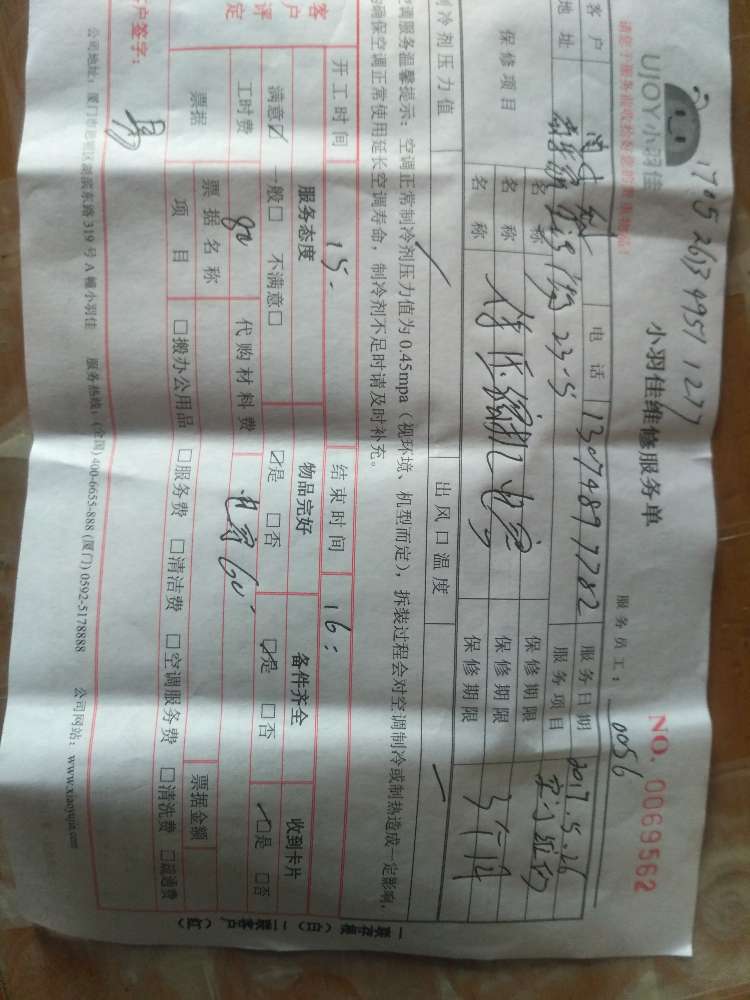 170526134951 1277
UJOY小羽佳
小羽佳维修服务单
NO. 0069562
服务员工: 0056
客户
电话 13074897782
服务日期 2017.5.26
地址
23-5
服务项目
保修项目
名称
保修期限
名称
保修期限
名称
保修期限 3个月
制冷剂压力值
出风口温度
空调服务温馨提示: 空调正常制冷剂压力值为0.45mpa(视环境、机型而定), 拆装过程会对空调制冷或制热造成一定影响,
确保空调正常使用延长空调寿命, 制冷剂不足时请及时补充。
开工时间 15:
结束时间 16:
客户评定
服务态度
物品完好
备件齐全
收到卡片
满意☑ 一般□ 不满意□
☑是 □否
☑是 □否
☑是 □否
工时费 80
代购材料费 电容60
票据
票据名称
票据金额
项目
□搬办公用品 □服务费 □清洁费 □空调服务费 □清洗费 □疏通费
客户签字:
公司地址: 厦门市思明区湖滨东路319号A幢小羽佳 服务热线: (全国) 400-6655-888 (厦门) 0592-5178888 公司网站: www.xiaoyujia.com
一联存根(白) 二联客户(红)